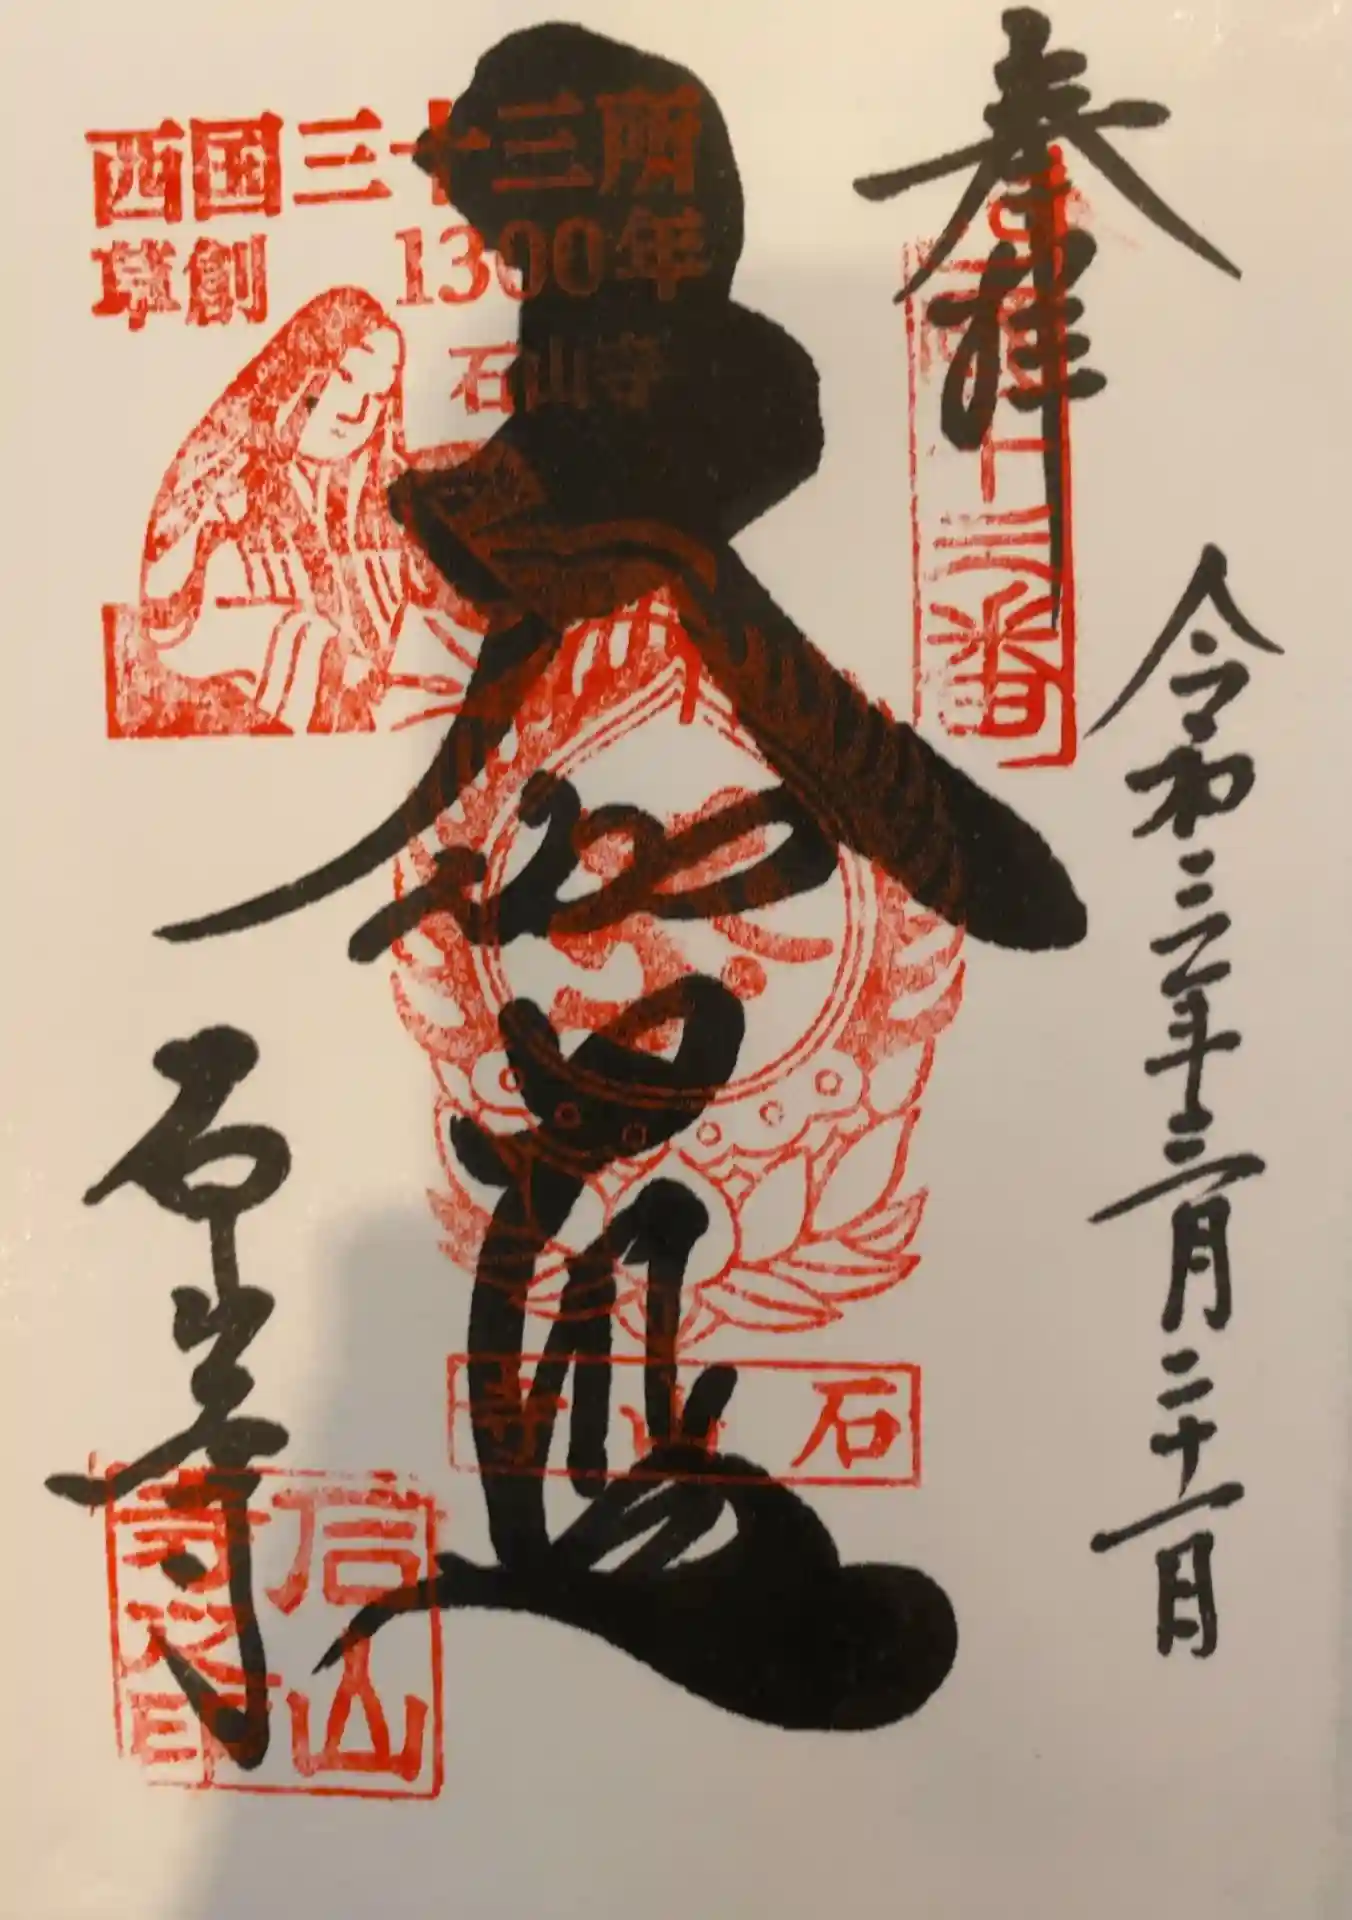 奉拝
西国十三番
令和三年三月二十一日
大伽藍
西国三十三所
草創 1300年
石山寺
石山寺
石山寺
石山寺之印